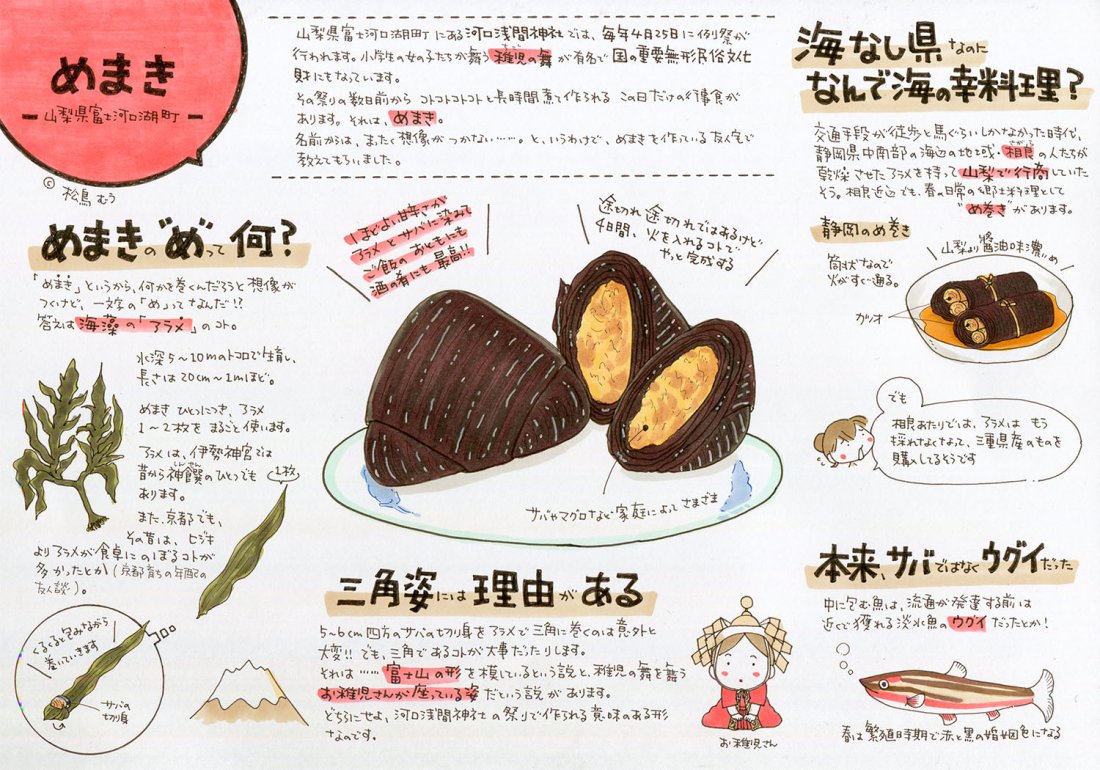 めまき
山梨県富士河口湖町
© 松鳥むう
山梨県富士河口湖町にある河口浅間神社では、毎年4月25日に例祭が
行われます。小学生の女の子たちが舞う稚児の舞が有名で国の重要無形民俗文化
財にもなっています。
その祭りの数日前からコトコトコトコトと長時間煮て作られるこの日だけの行事食が
あります。それは、めまき。
名前からは、またく想像がつかない……。と、いうわけで、めまきを作っている友人宅で
教えてもらいました。
めまきの“め”って何?
「めまき」というから、何かを巻くんだろうと想像が
つくけど、一文字の「め」ってなんだ!?
答えは海藻の「アラメ」のコト。
水深5〜10mのトコロで生育し、
長さは20cm〜1mほど。
めまきひとつにつき、アラメ
1〜2枚をまるごと使います。
アラメは、伊勢神宮では
昔から神饌のひとつでも
しんせん
あります。
また、京都でも、
その昔は、ヒジキ
よりアラメが食卓にのぼるコトが
多かったとか(京都育ちの年配の
友人談)。
1枚
くるくると包みながら
巻いていきます
サバの
切り身
ほどよい甘辛さが
アラメとサバに染みて
ご飯のおともにも
酒の肴にも最高!!
途切れ途切れではあるけど
4日間、火を入れるコトで
やっと完成する
サバやマグロなど家庭によってさまざま
三角姿には理由がある
5〜6cm四方のサバの切り身をアラメで三角に巻くのは意外と
大変!!でも、三角であるコトが大事だったりします。
それは……富士山の形を模しているという説と、稚児の舞を舞う
お稚児さんが座っている姿だという説があります。
どちらにせよ、河口浅間神社の祭りで作られる意味のある形
なのです。
お稚児さん
海なし県なのに
なんで海の幸料理?
交通手段が徒歩と馬ぐらいしかなかった時代、
静岡県中南部の海辺の地域・相良の人たちが
さがら
乾燥させたアラメを持って山梨で行商していた
そう。相良近辺でも、春の日常の郷土料理として
“め巻き”があります。
静岡のめ巻き
山梨より醬油味濃いめ
筒状なので
火がすぐ通る。
カツオ
でも
相良あたりでは、アラメはもう
採れなくなって、三重県産のものを
購入してるそうです
本来、サバではなくウグイだった
中に包む魚は、流通が発達する前は
近くで獲れる淡水魚のウグイだったとか!
春は繁殖時期で赤と黒の婚姻色になる